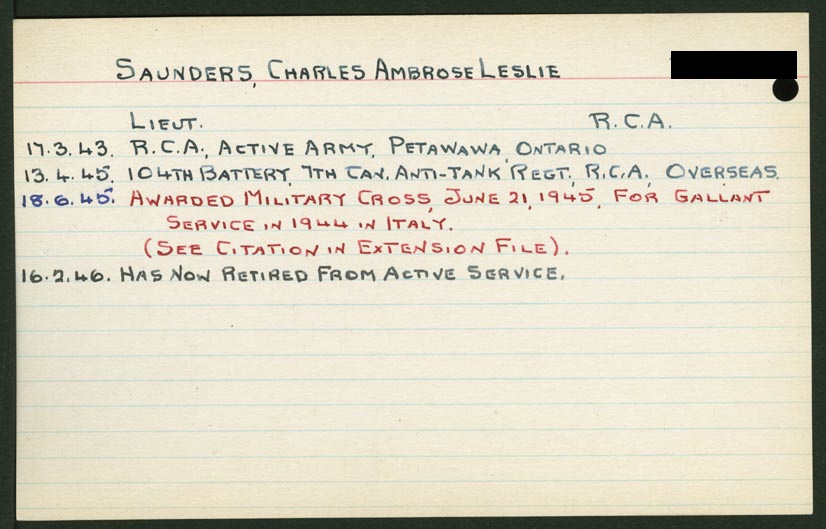 SAUNDERS, CHARLES AMBROSE LESLIE
LIEUT. R.C.A.
17.3.43. R.C.A., ACTIVE ARMY, PETAWAWA, ONTARIO
13.4.45. 104TH BATTERY, 7TH CAN. ANTI-TANK REGT., R.C.A., OVERSEAS.
18.6.45. AWARDED MILITARY CROSS, JUNE 21, 1945, FOR GALLANT
SERVICE IN 1944 IN ITALY.
(SEE CITATION IN EXTENSION FILE).
16.2.46. HAS NOW RETIRED FROM ACTIVE SERVICE.